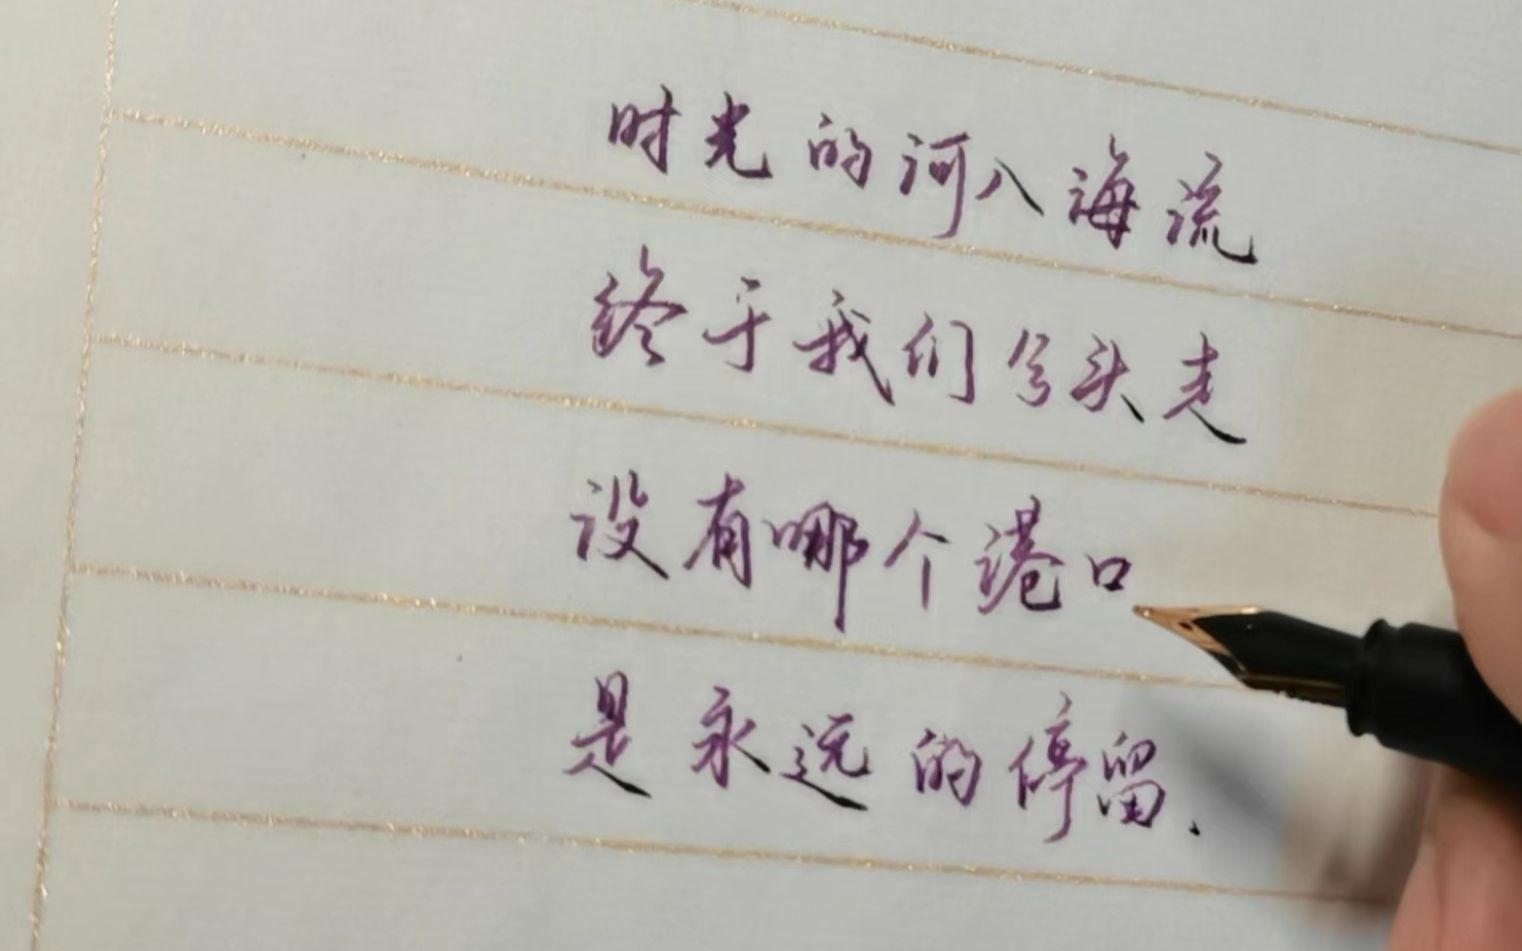 时光的河入海流
终于我们分头走
没有哪个港口
是永远的停留.